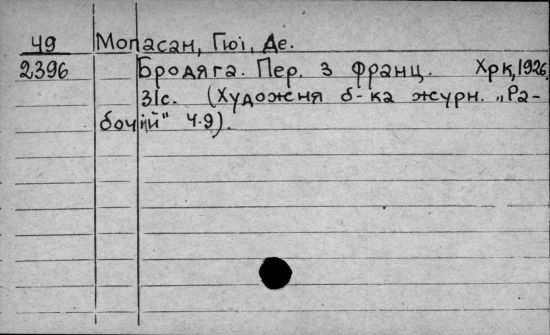 49 Мопасан, Гюї, Де.
2396 Бродяга. Пер. з франц. Хрк, 1926.
31с. (Художня б-ка журн. „Ра-
бочий" ч.9).